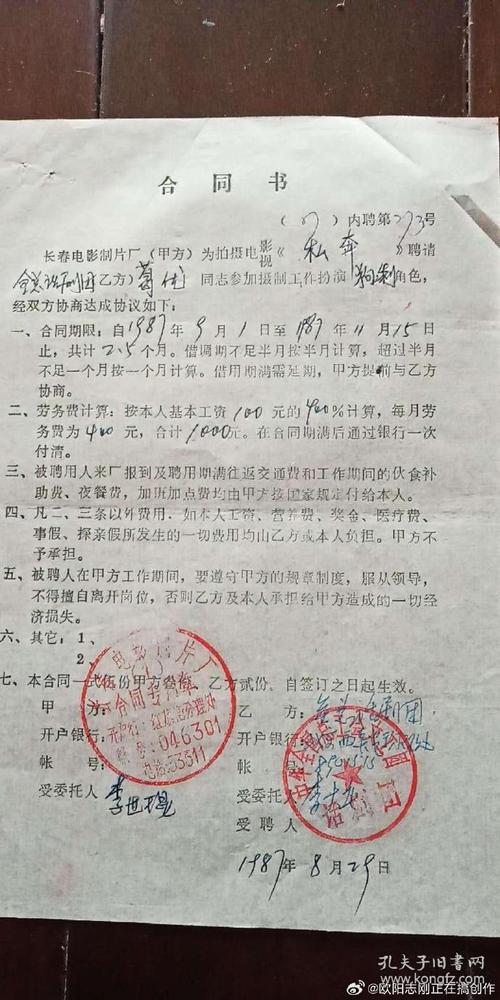 合同书
(87)内聘第273号
长春电影制片厂(甲方)为拍摄电影视《私奔》聘请
全总话剧团(乙方)葛优同志参加摄制工作扮演 角色,
经双方协商达成协议如下:
一、合同期限:自1987年9月1日至1987年11月15日
止,共计2.5个月。借调期不足半月按半月计算,超过半月
不足一个月按一个月计算。借用期满需延期,甲方提前与乙方
协商。
二、劳务费计算:按本人基本工资100元的400%计算,每月劳
务费为400元,合计1000元。在合同期满后通过银行一次
付清。
三、被聘用人来厂报到及聘用期满往返交通费和工作期间的伙食补
助费、夜餐费,加班加点费均由甲方按国家规定付给本人。
四、凡二、三条以外费用,如本人工资、营养费、奖金、医疗费、
事假、探亲假所发生的一切费用均由乙方或本人负担。甲方不
予承担。
五、被聘人在甲方工作期间,要遵守甲方的规章制度,服从领导,
不得擅自离开岗位,否则乙方及本人承担给甲方造成的一切经
济损失。
六、其它:1、
2、
七、本合同一式伍份甲方叁份,乙方贰份,自签订之日起生效。
甲方:
乙方:全总话剧团
开户银行:
开户银行:
帐号:
帐号:
受委托人
受委托人
受聘人
1987年8月29日
电影制片厂
合同专用章
046301
电话:53311
话剧团
孔夫子旧书网
@欧阳志刚正在搞创作